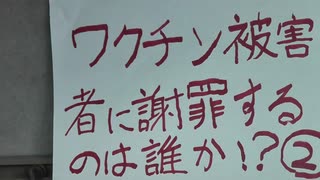 ワクチン被害
者に謝罪する
のは誰か!?②